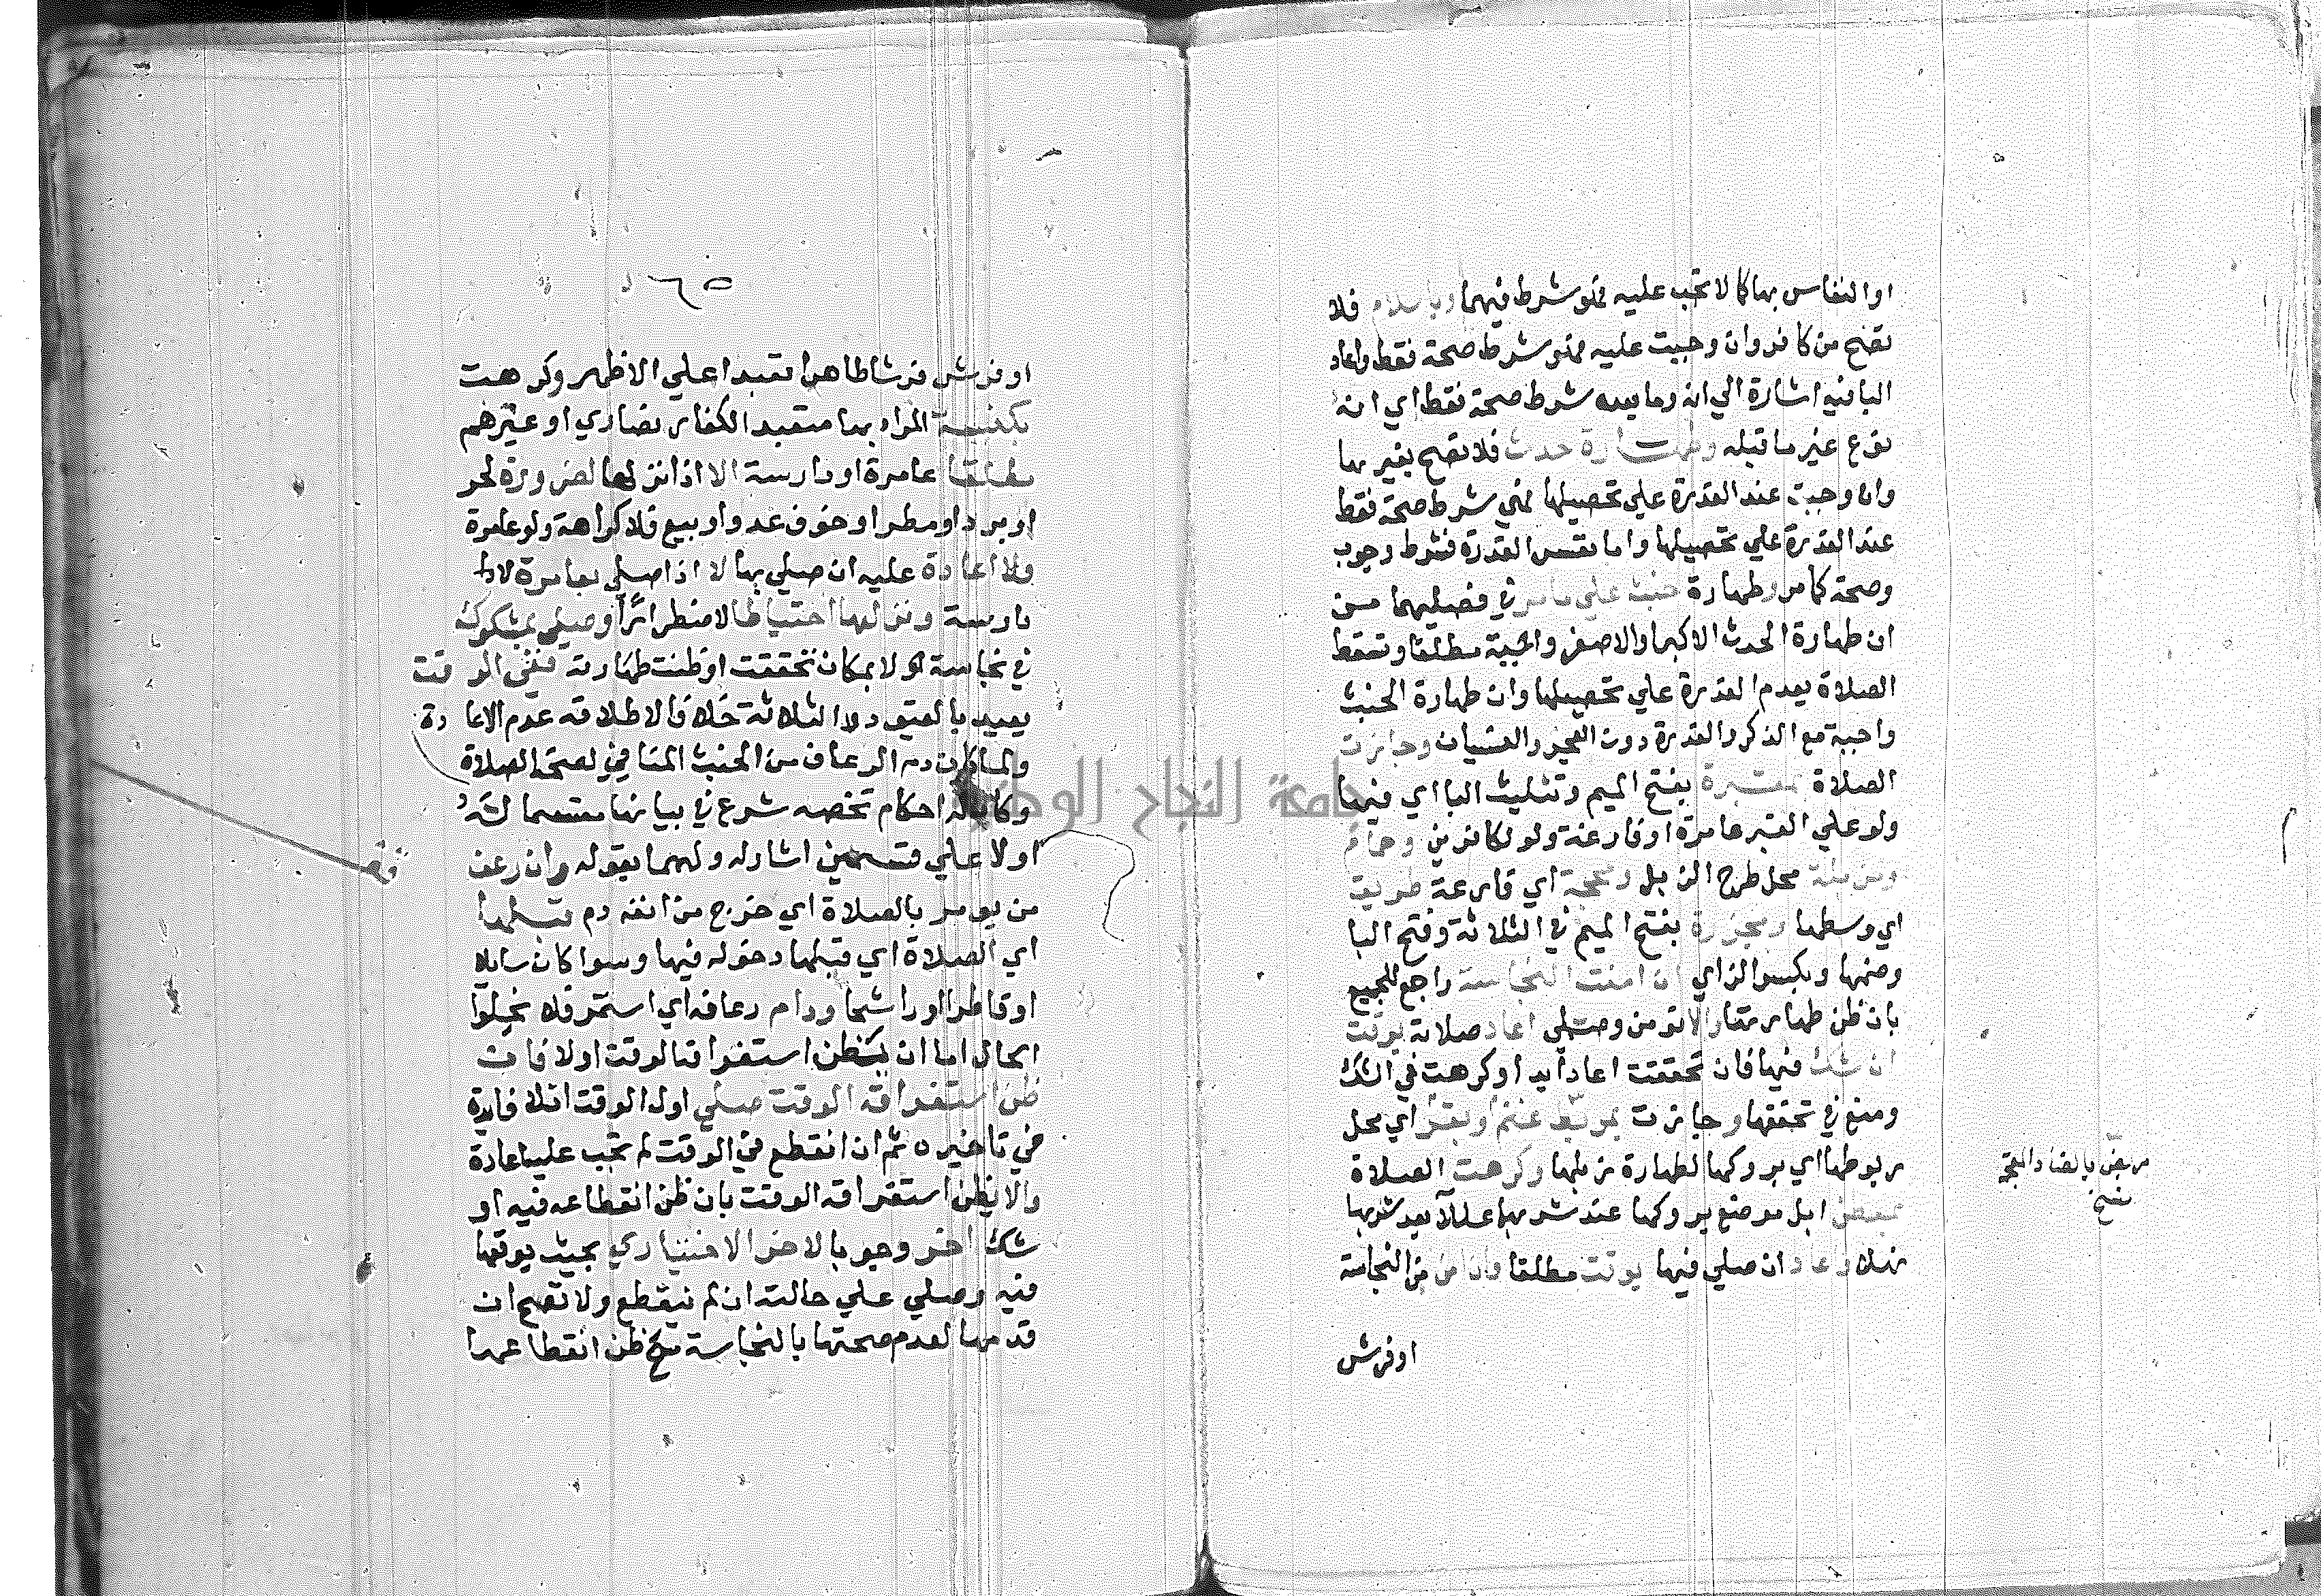 او النفاس بها كما لا تجب عليه فهو شرط فيهما وباسلام فلا
تصح من كافر وان وجبت عليه فهو شرط صحة فقط واعاد
البا فيه اشارة الي انه وما بعده شرط صحة فقط اي انه
نوع غير ما قبله وطهارة حدث فلا تصح بغيرها
وان وجبت عند القدرة علي تحصيلها فهي شرط صحة فقط
عند القدرة علي تحصيلها واما نفس القدرة فشرط وجوب
وصحة كما مر وطهارة خبث علي ما مر في فصليهما من
ان طهارة الحدث الاكبر والاصغر واجبة مطلقا وتسقط
الصلاة بعدم القدرة علي تحصيلها وان طهارة الخبث
واجبة مع الذكر والقدرة دون العجز والنسيان وجازت
الصلاة بمقبرة بفتح الميم وتثليث البا اي فيها
ولو علي القبر عامرة او فارغة ولو لكافرين وحمام
ومزبلة محل طرح الزبل ومحجة اي قارعة طريق
اي وسطها ومجزرة بفتح الميم في الثلاثة وفتح البا
وضمها وبكسر الزاي ان امنت النجاسة راجع للجميع
بان ظن طهارتها والا تومن وصلي اعاد صلاته بوقت
ان شك فيها فان تحققت اعاد ابدا وكرهت في الشك
ومنع في تحققها وجازت بمربض غنم وبقر اي محل
ربوطها اي بروكها لطهارة زبلها وكرهت الصلاة
بمعطن ابل موضع بروكها عند شربها عللا بعد شربها
نهلا واعاد ان صلي فيها بوقت مطلقا وان امن من النجاسة
او فرش
مربض بالضاد المعجمة
٦٥
او فرش فرشا طاهرا تعبدا علي الاظهر وكرهت
بكنيسة المراد بها متعبد الكفار نصاري او غيرهم
مطلقا عامرة او دارسة الا اذا نزلها لضرورة لحر
او برد او مطر او خوف عدو او سبع فلا كراهة ولو عامرة
ولا اعادة عليه ان صلي بها لا اذا صلي بعامرة لا
دارسة ونزلها اختيارا لا اضطرارا وصلي بمشكوك
في نجاسته لا بمكان تحققت او ظنت طهارته ففي الوقت
يعيد بالقيود الثلاثة خلافا لاطلاقه عدم الاعادة
ولما كان دم الرعاف من الخبث المنافي لصحة الصلاة
وكان له احكام تخصه شرع في بيانها مقسما له
اولا علي قسمين اشار له ولهما بقوله وان رعف
من يومر بالصلاة اي خرج من انفه دم قبلها
اي الصلاة اي قبل دخوله فيها وسوا كان سايلا
او قاطرا او راشحا ودام رعافه اي استمر فلا يخلوا
الحال اما ان يظن استغراقه الوقت اولا فان
ظن استغراقه الوقت صلي اول الوقت اذ لا فايدة
في تاخيره ثم ان انقطع في الوقت لم تجب عليه اعادة
والا يظن استغراقه الوقت بان ظن انقطاعه فيه او
شك اخر وجوبا لاخر الاختياري بحيث يوقعها
فيه وصلي علي حالته ان لم ينقطع ولا تصح ان
قدمها لعدم صحتها بالنجاسة مع ظن انقطاعها